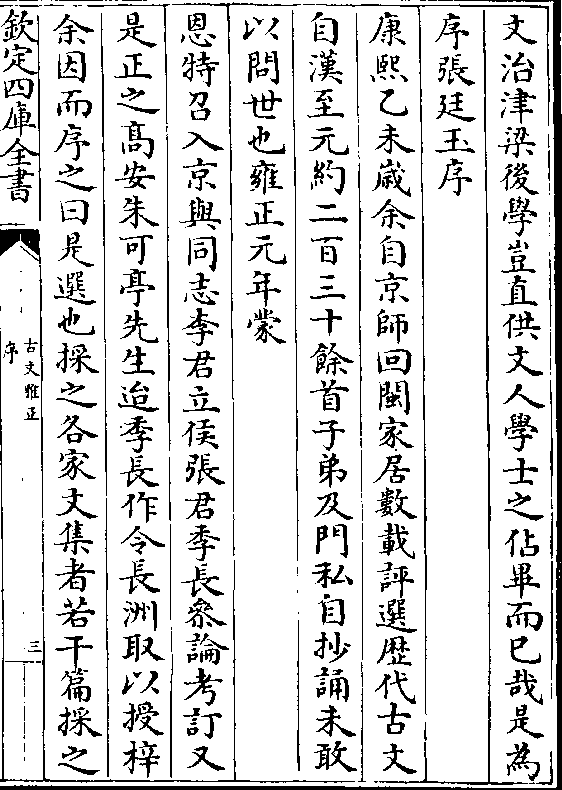 文治津梁後學豈直供文人學士之佔畢而已哉是為
序張廷玉序
康熙乙未歲余自京師回閩家居數載評選歴代古文
自漢至元約二百三十餘首子弟及門私自抄誦未敢
以問世也雍正元年蒙
恩特召入京與同志李君立侯張君季長叅論考訂又
是正之髙安朱可亭先生迨季長作令長洲取以授梓
余因而序之曰是選也採之各家文集者若干篇採之
欽定四庫全書
古文雅正
序
三